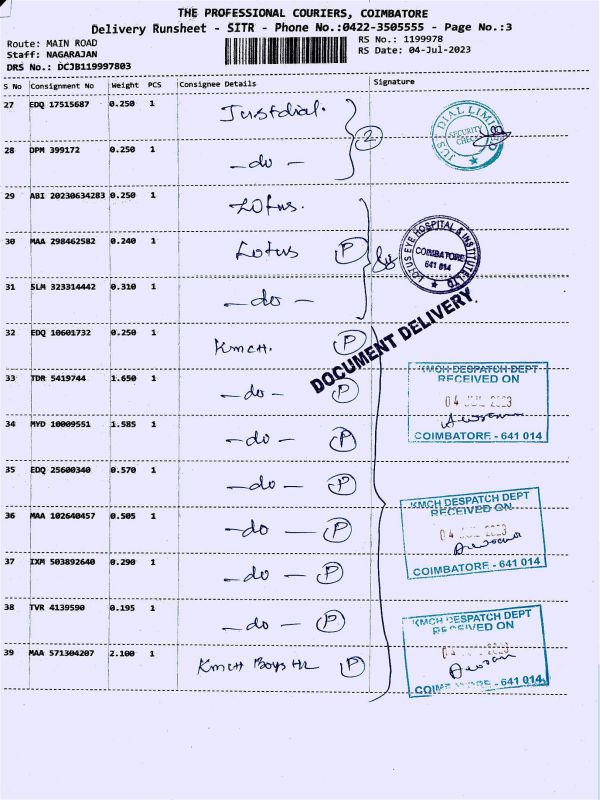 THE PROFESSIONAL COURIERS, COIMBATORE
Delivery Runsheet - SITR - Phone No.:0422-3505555 - Page No.:3
Route: MAIN ROAD
RS No.: 1199978
Staff: NAGARAJAN
RS Date: 04-Jul-2023
DRS No.: DCJB119997803
S No Consignment No Weight PCS Consignee Details Signature
27 EDQ 17515687 0.250 1 Justdial.
2
JUST DIAL LIMITED
SECURITY CHECK
28 DPM 399172 0.250 1 -do-
29 ABI 20230634283 0.250 1 Lotus.
30 MAA 298462582 0.240 1 Lotus P
LOTUS EYE HOSPITAL & INSTITUTE LTD
COIMBATORE
641 014
31 SLM 323314442 0.310 1 -do-
DOCUMENT DELIVERY
32 EDQ 10601732 0.250 1 KMCH. P
33 TDR 5419744 1.650 1 -do- P
KMCH DESPATCH DEPT
RECEIVED ON
04 JUL 2023
COIMBATORE - 641 014
34 MYD 10009551 1.585 1 -do- P
35 EDQ 25600340 0.570 1 -do- P
36 MAA 102640457 0.505 1 -do- P
KMCH DESPATCH DEPT
RECEIVED ON
04 JUL 2023
COIMBATORE - 641 014
37 IXM 503892640 0.290 1 -do- P
38 TVR 4139590 0.195 1 -do- P
KMCH DESPATCH DEPT
RECEIVED ON
04 JUL 2023
COIMBATORE - 641 014
39 MAA 571304207 2.100 1 KMCH Boys HL P